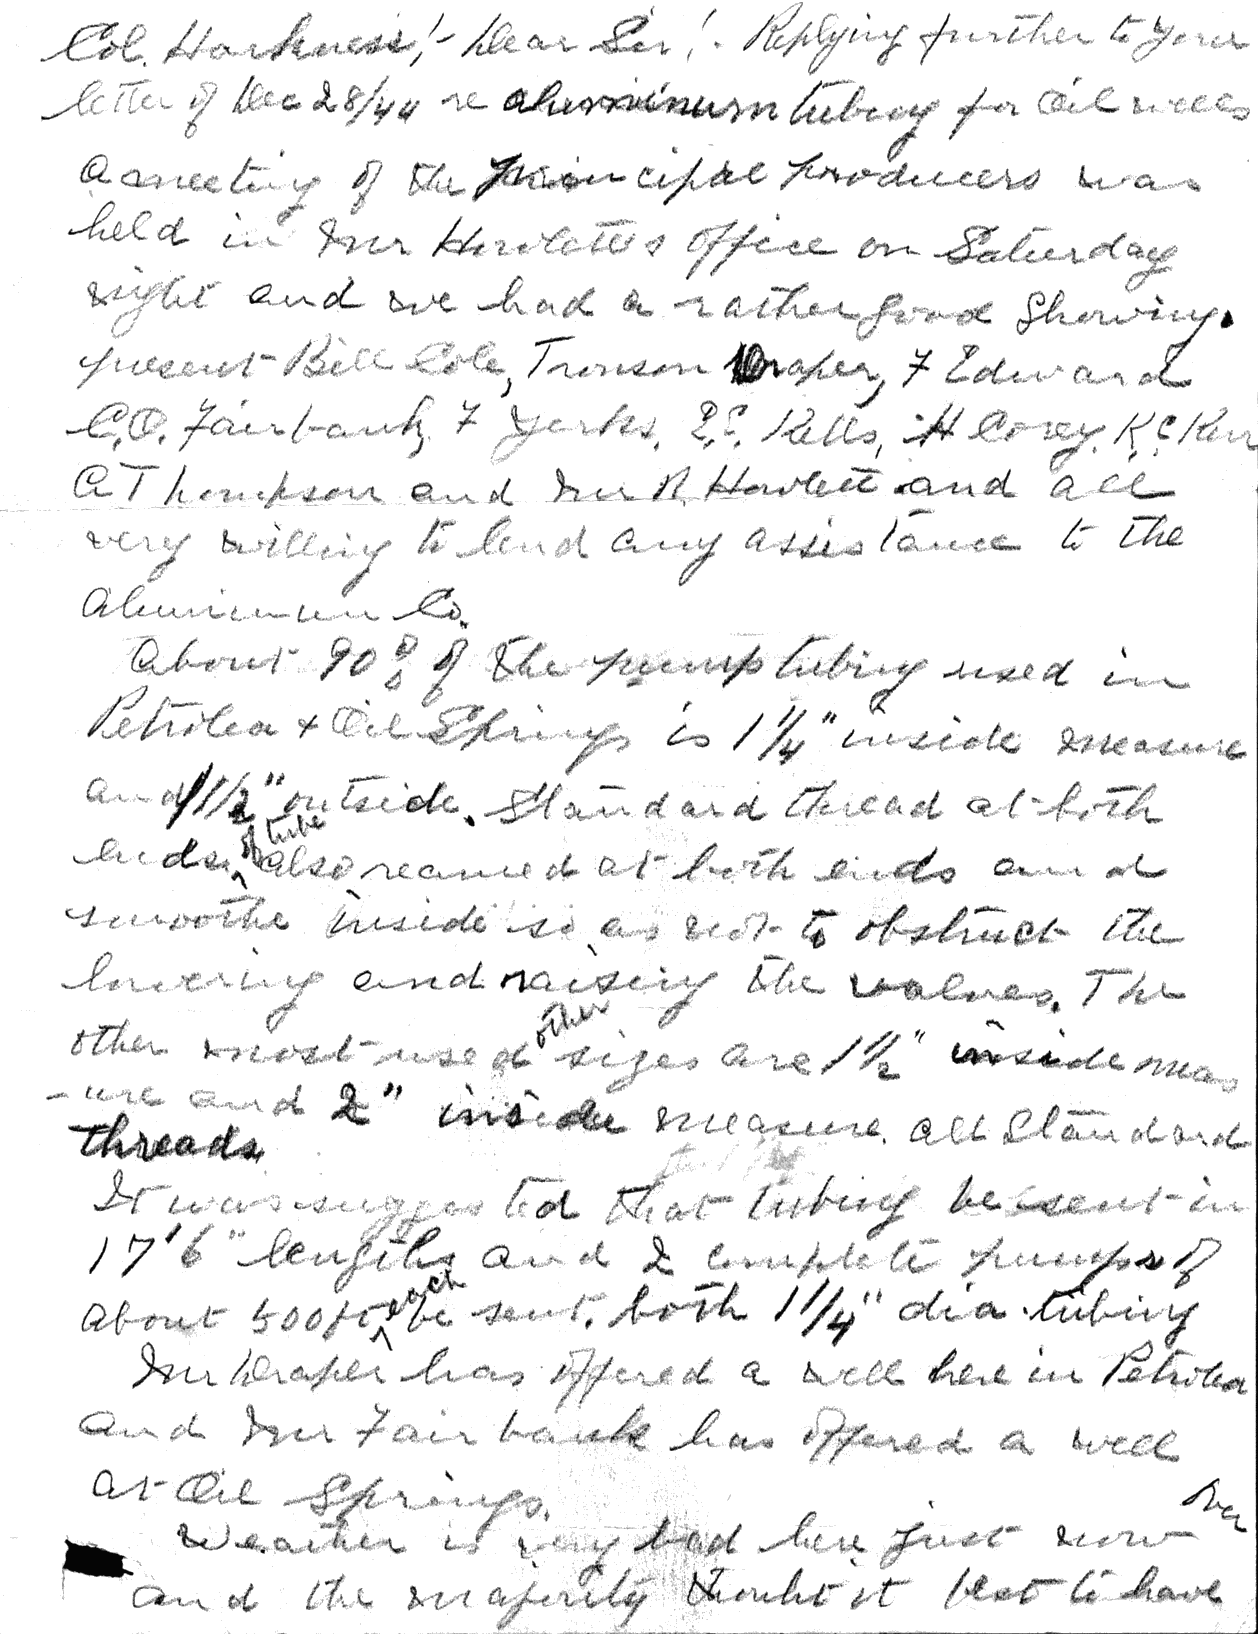 Col. Harkness! - Dear Sir! - Replying further to your
letter of Dec 28/44 re aluminum tubing for Oil wells
a meeting of the principal producers was
held in Mr Howlett's office on Saturday
night and we had a rather good showing.
present Bill Cole, Tronson Draper, F Edward
C.O. Fairbank, F Yerks, Kells, H Corey, K.C Kerr
A Thompson and Mr R Howlett and all
very willing to lend any assistance to the
Aluminum Co.
About 90% of the pump tubing used in
Petrolea + Oil Springs is 1 1/4" inside measure
and 1 1/2" outside. Standard thread at both
ends of tube also reamed at both ends and
smoothe inside so as not to obstruct the
lowering and raising the valves. The
other most used other sizes are 1 1/2" inside meas
-ure and 2" inside measure. all Standard
threads
It was suggested that tubing be sent in
17'6" lengths and 2 complete pumps of
about 500ft each be sent. both 1 1/4" dia. tubing
Mr Draper has offered a well here in Petrolea
and Mr Fairbank has offered a well
at Oil Springs.
over
Weather is very bad here just now
and the majority thouht it best to have